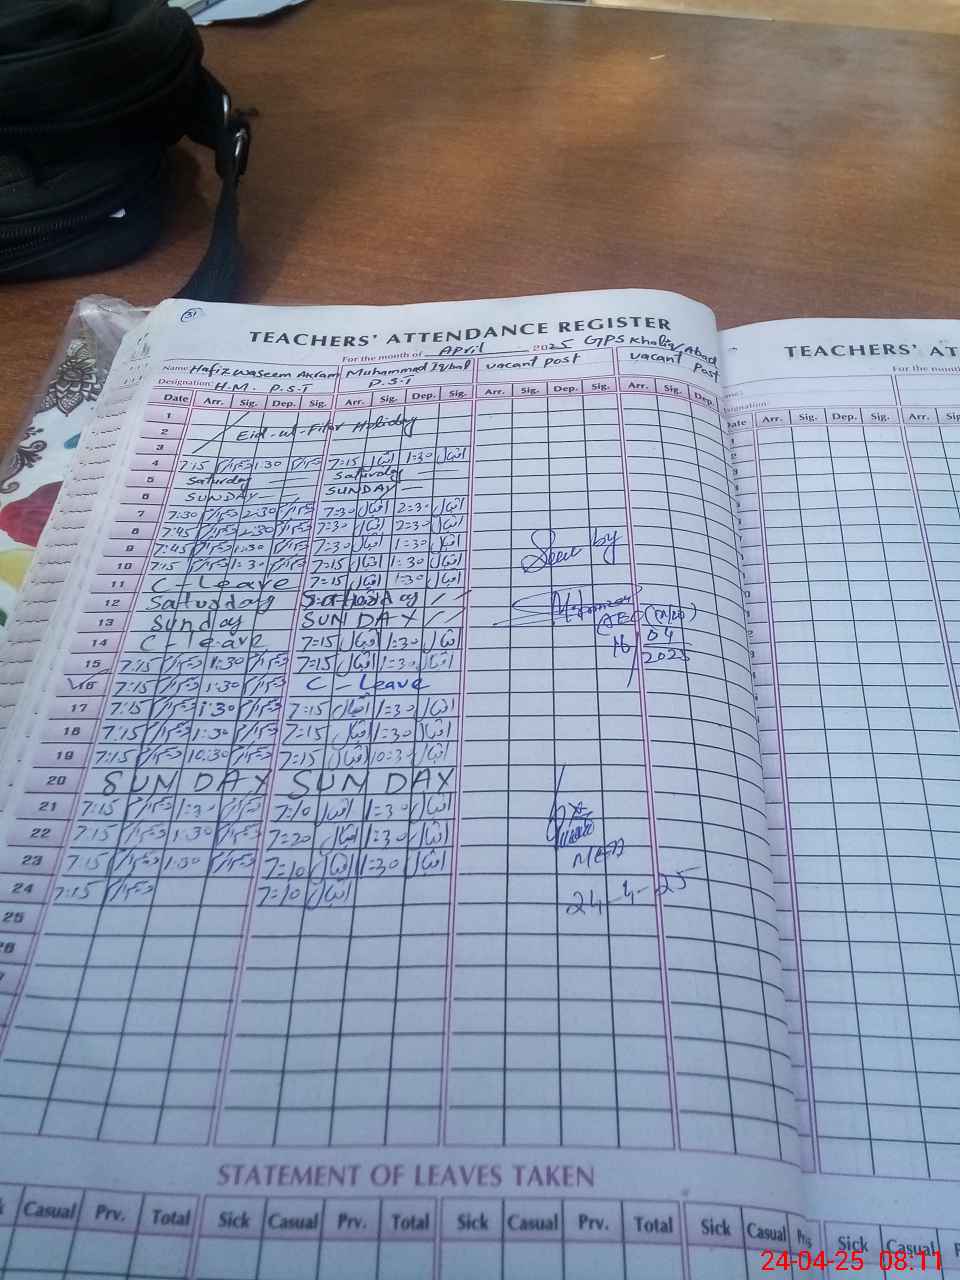 31
TEACHERS' ATTENDANCE REGISTER
For the month of April 2025 GPS Khaliq Abad
Name: Hafiz waseem Akram Muhammad Iqbal vacant post vacant Post
Designation: H.M. P.S.T P.S.T
Date Arr. Sig. Dep. Sig. Arr. Sig. Dep. Sig. Arr. Sig. Dep. Sig. Arr. Sig. Dep.
1
2 Eid-ul-Fiter Holiday
3
4 7:15 1:30 7=15 اقبال 1=30 اقبال
5 Saturday Saturday
6 SUNDAY SUNDAY
7 7:30 2:30 7=30 اقبال 2=30 اقبال
8 7:45 2:30 7=30 اقبال 2=30 اقبال
9 7:45 1:30 7=30 اقبال 1=30 اقبال
10 7:15 1:30 7=15 اقبال 1=30 اقبال
11 C-Leave 7=15 اقبال 1=30 اقبال
12 Saturday Saturday
13 Sunday SUNDAY
14 C-leave 7=15 اقبال 1=30 اقبال
15 7:15 1:30 7=15 اقبال 1=30 اقبال
16 7:15 1:30 C-Leave
17 7:15 1:30 7=15 اقبال 1=30 اقبال
18 7:15 1:30 7=15 اقبال 1=30 اقبال
19 7:15 10:30 7=15 اقبال 10=30 اقبال
20 SUNDAY SUNDAY
21 7:15 1:30 7=10 اقبال 1=30 اقبال
22 7:15 1:30 7=20 اقبال 1=30 اقبال
23 7:15 1:30 7=10 اقبال 1=30 اقبال
24 7:15 7=10 اقبال
25
Seen by
AEO
16
04
2025
MEA
24-4-25
STATEMENT OF LEAVES TAKEN
Casual Prv. Total Sick Casual Prv. Total Sick Casual Prv. Total Sick Casual
TEACHERS' AT
For the month
Date Arr. Sig. Dep. Sig. Arr. Sig.
Sick Casual
24-04-25 08:11